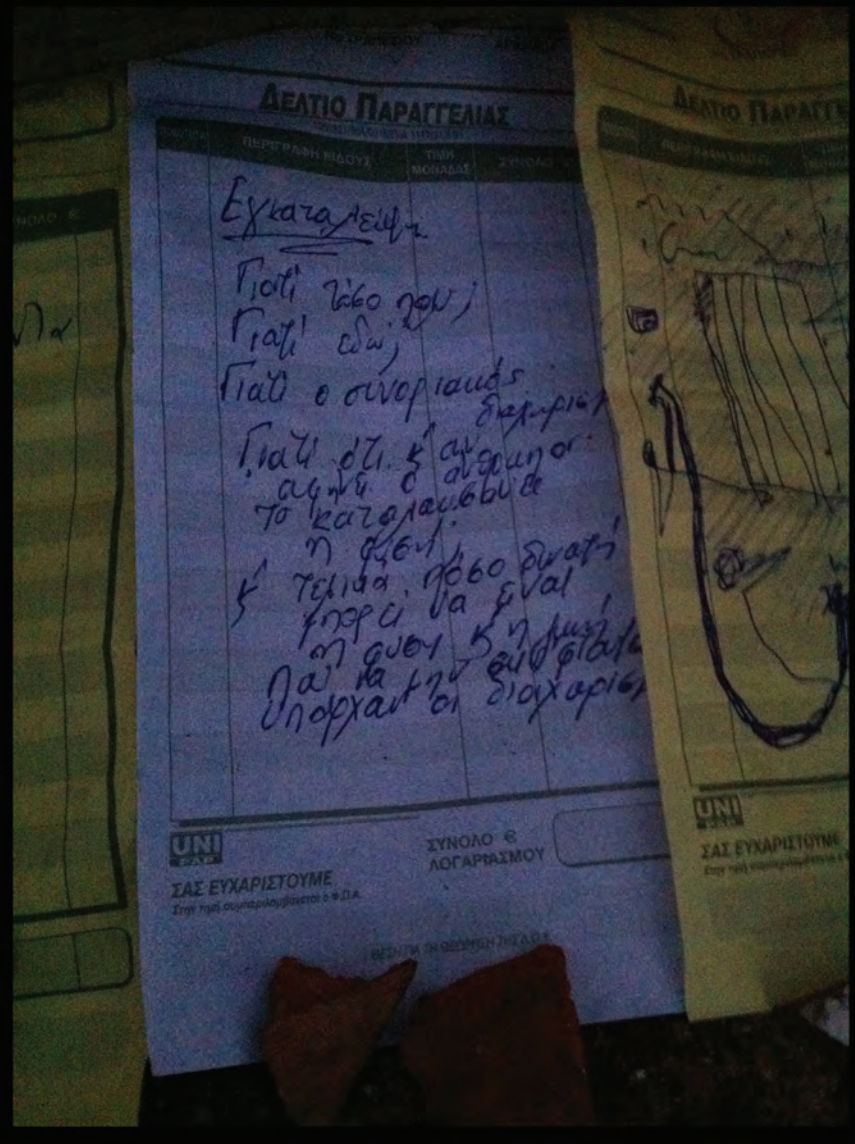 ΔΕΛΤΙΟ ΠΑΡΑΓΓΕΛΙΑΣ
ΠΕΡΙΓΡΑΦΗ ΕΙΔΟΥΣ
ΤΙΜΗ ΜΟΝΑΔΑΣ
ΣΥΝΟΛΟ
Εγκατάλειψη
Γιατί τόσο πολύ;
Γιατί εδώ;
Γιατί ο συνοριακός
διαχωρισμ
Γιατί ότι κ αν
αφήνει ο άνθρωπος
το καταλαμβάνει
η φύση;
κ τελικά πόσο δυνατή
μπορεί να είναι
η φύση κ η
για να
υπάρχουν οι διαχωρισμ
UNI PAP
ΣΑΣ ΕΥΧΑΡΙΣΤΟΥΜΕ
Στην τιμή συμπεριλαμβάνεται ο Φ.Π.Α.
ΣΥΝΟΛΟ €
ΛΟΓΑΡΙΑΣΜΟΥ
ΘΕΣΗ ΓΙΑ ΤΗ ΘΕΩΡΗΣΗ ΤΗΣ Δ.Ο.Υ.
ΔΕΛΤΙΟ ΠΑΡΑΓΓΕ
UNI
ΣΑΣ ΕΥΧΑΡΙΣΤΟΥΜΕ
ΝΟΛΟ €